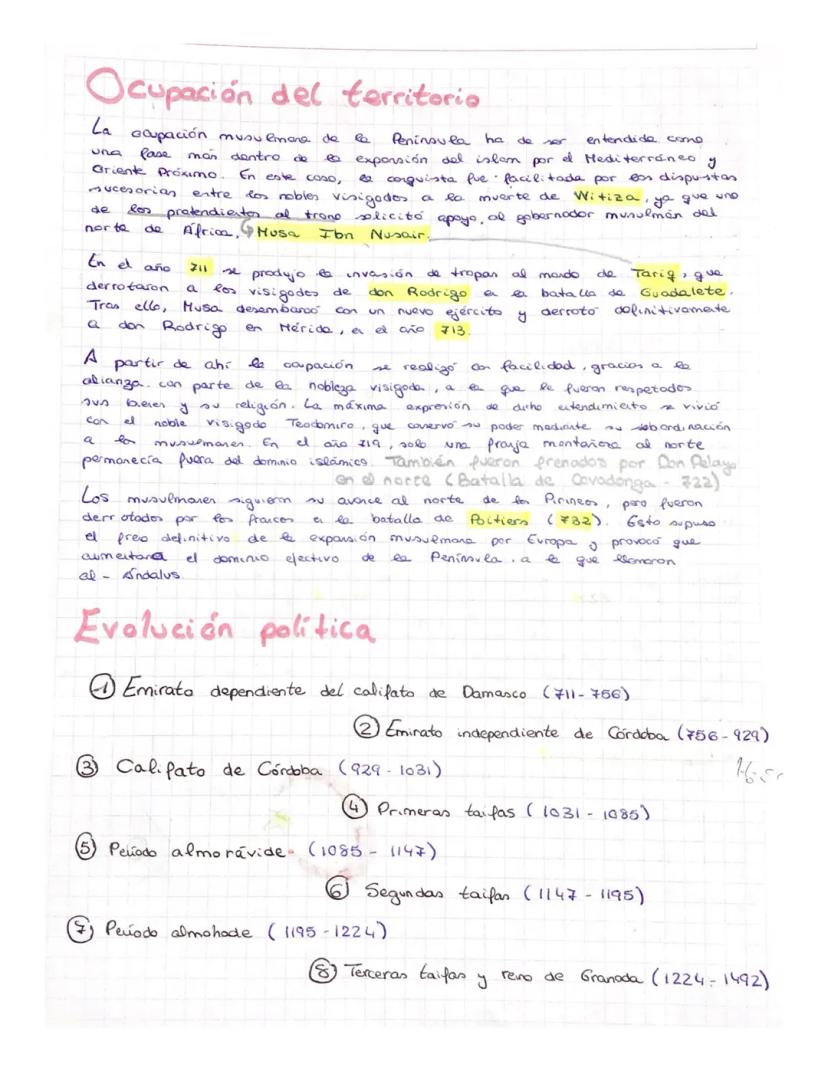 Ocupación del territorio
La ocupación musulmana de la Península ha de ser entendida como
una fase más dentro de la expansión del islam por el Mediterráneo y
Oriente Próximo. En este caso, la conquista fue facilitada por las disputas
sucesorias entre los nobles visigodos a la muerte de Witiza, ya que uno
de los pretendientes al trono solicitó apoyo, al gobernador musulmán del
norte de África, Musa Ibn Nusair.
En el año 711 se produjo la invasión de tropas al mando de Tariq, que
derrotaron a los visigodos de don Rodrigo en la batalla de Guadalete.
Tras ello, Musa desembarcó con un nuevo ejército y derrotó definitivamente
a don Rodrigo en Mérida, en el año 713.
A partir de ahí la ocupación se realizó con facilidad, gracias a la
alianza con parte de la nobleza visigoda, a la que le fueron respetados
sus bienes y su religión. La máxima expresión de dicho entendimiento se vivió
con el noble visigodo Teodomiro, que conservó su poder mediante su subordinación
a los musulmanes. En el año 719, solo una franja montañosa al norte
permanecía fuera del dominio islámico. También fueron frenados por Don Pelayo
en el norte (Batalla de Covadonga - 722)
Los musulmanes siguieron su avance al norte de los Pirineos, pero fueron
derrotados por los francos en la batalla de Poitiers (732). Esto supuso
el freno definitivo de la expansión musulmana por Europa y provocó que
aumentara el dominio efectivo de la Península, a la que llamaron
al-Ándalus.
Evolución política
1 Emirato dependiente del califato de Damasco (711-756)
2 Emirato independiente de Córdoba (756-929)
3 Califato de Córdoba (929-1031)
4 Primeras taifas (1031-1085)
5 Período almorávide (1085-1147)
6 Segundas taifas (1147-1195)
7 Período almohade (1195-1224)
8 Terceras taifas y reino de Granada (1224-1492)